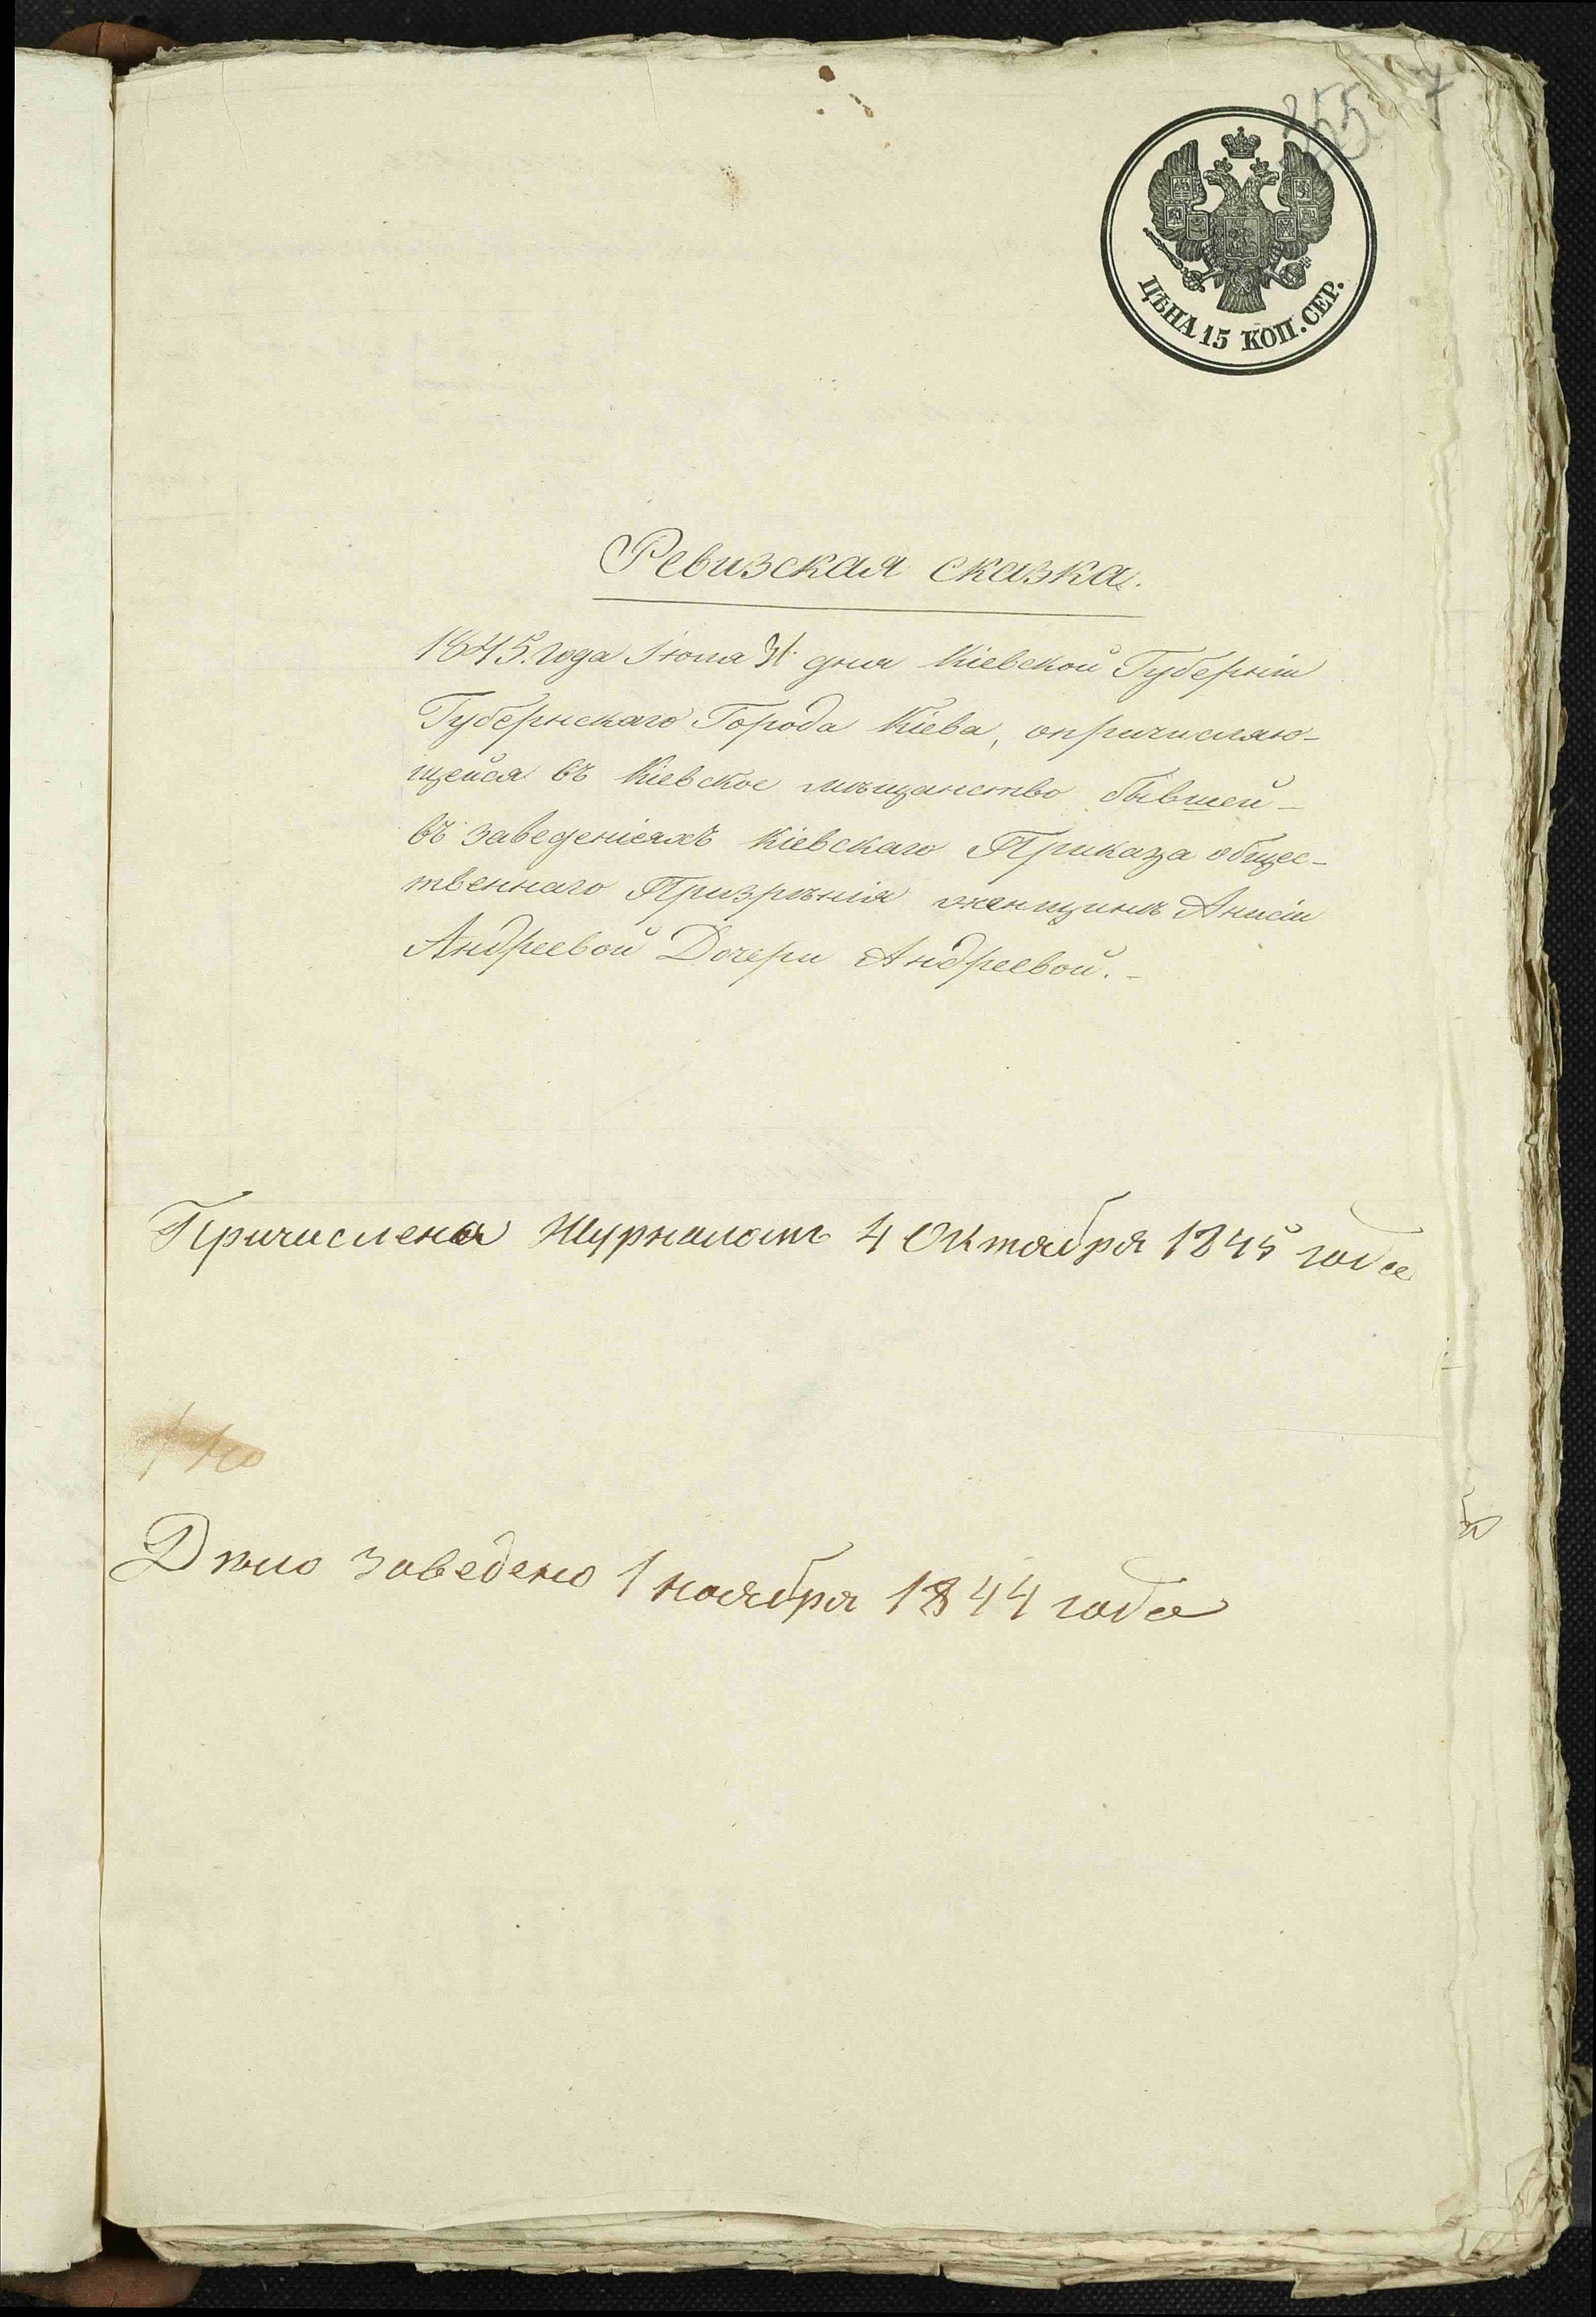 355 7
ЦѢНА 15 КОП. СЕР.
Ревизская сказка.
1845. года Іюля 31. дня Кіевской Губерніи
Губернскаго Города Кіева, опричисляю-
щейся въ Кіевское мѣщанство бывшей-
въ заведеніяхъ Кіевскаго Приказа общес-
твеннаго Призрѣнія женщинѣ Анисіи
Андреевой Дочери Андреевой.-
Причислена Журналомъ 4 Октября 1845 года
Дѣло заведено 1 ноября 1844 года